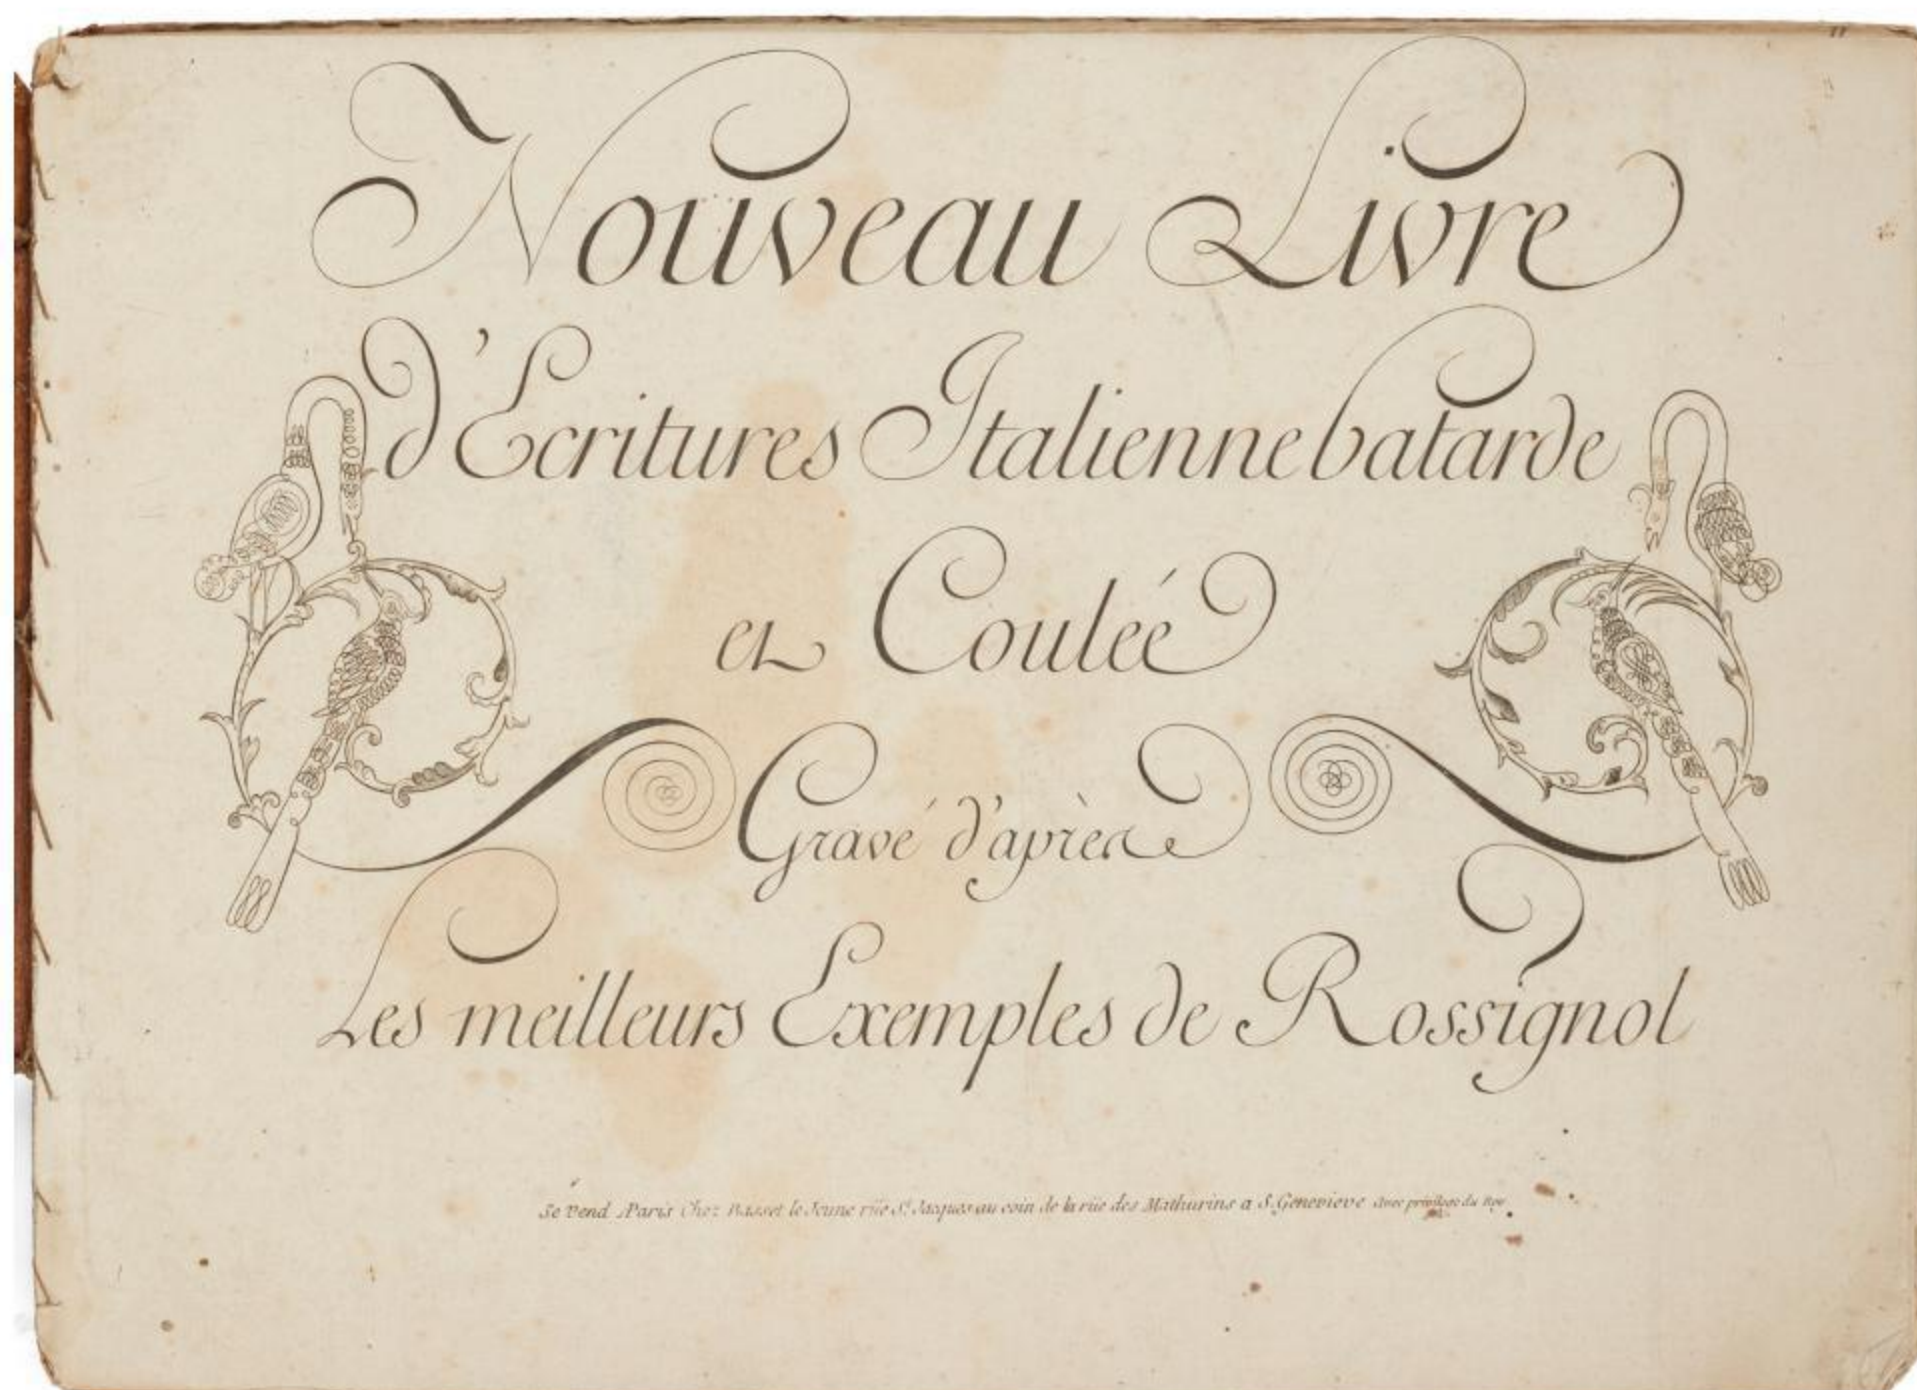 Nouveau Livre
d'Ecritures Italienne batarde
et Coulée
Gravé d'après
Les meilleurs Exemples de Rossignol
Se vend a Paris Chez Basset le Jeune rüe St. Jacques au coin de la rüe des Mathurins a S. Genevieve avec privilege du Roy